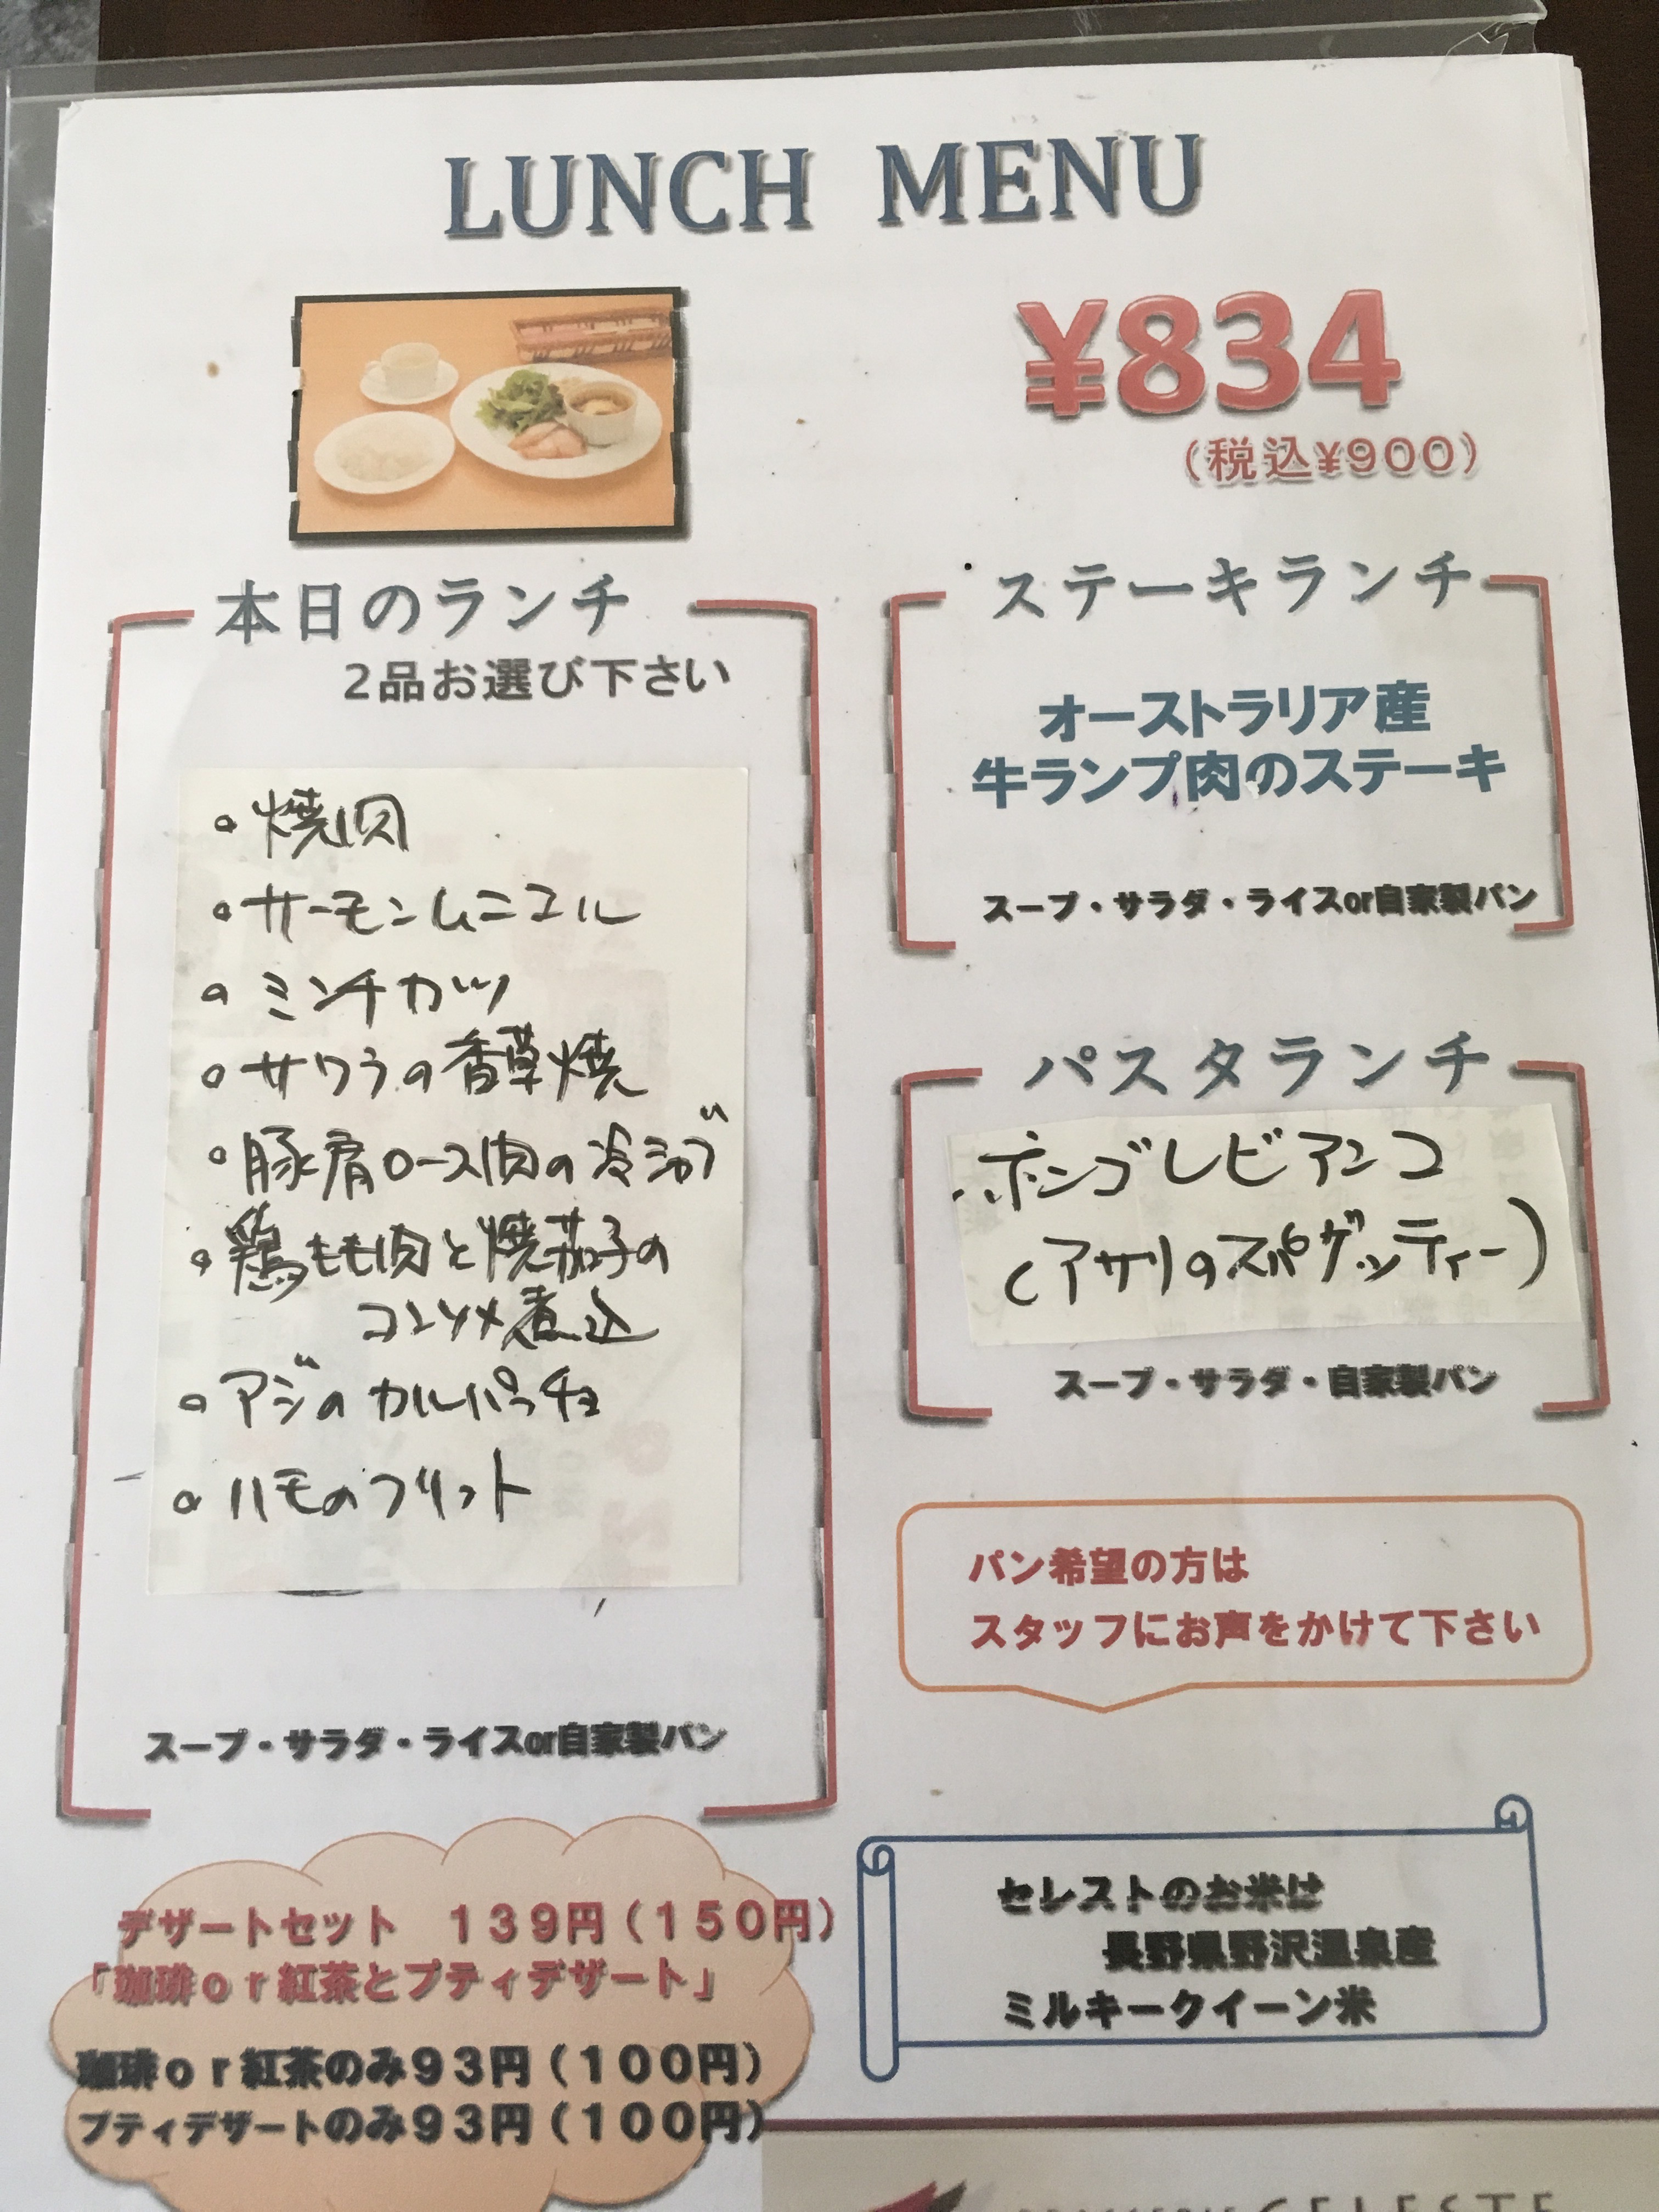 LUNCH MENU
¥834
(税込¥900)
本日のランチ
2品お選び下さい
・焼肉
・サーモンムニエル
・ミンチカツ
・サワラの香草焼
・豚肩ロース肉の冷シャブ
・鶏もも肉と焼茄子の
コンソメ煮込
・アジのカルパッチョ
・ハモのフリット
スープ・サラダ・ライスor自家製パン
ステーキランチ
オーストラリア産
牛ランプ肉のステーキ
スープ・サラダ・ライスor自家製パン
パスタランチ
ボンゴレビアンコ
(アサリのスパゲッティー)
スープ・サラダ・自家製パン
パン希望の方は
スタッフにお声をかけて下さい
デザートセット 139円(150円)
「珈琲or紅茶とプティデザート」
珈琲or紅茶のみ93円(100円)
プティデザートのみ93円(100円)
セレストのお米は
長野県野沢温泉産
ミルキークイーン米
CELESTE